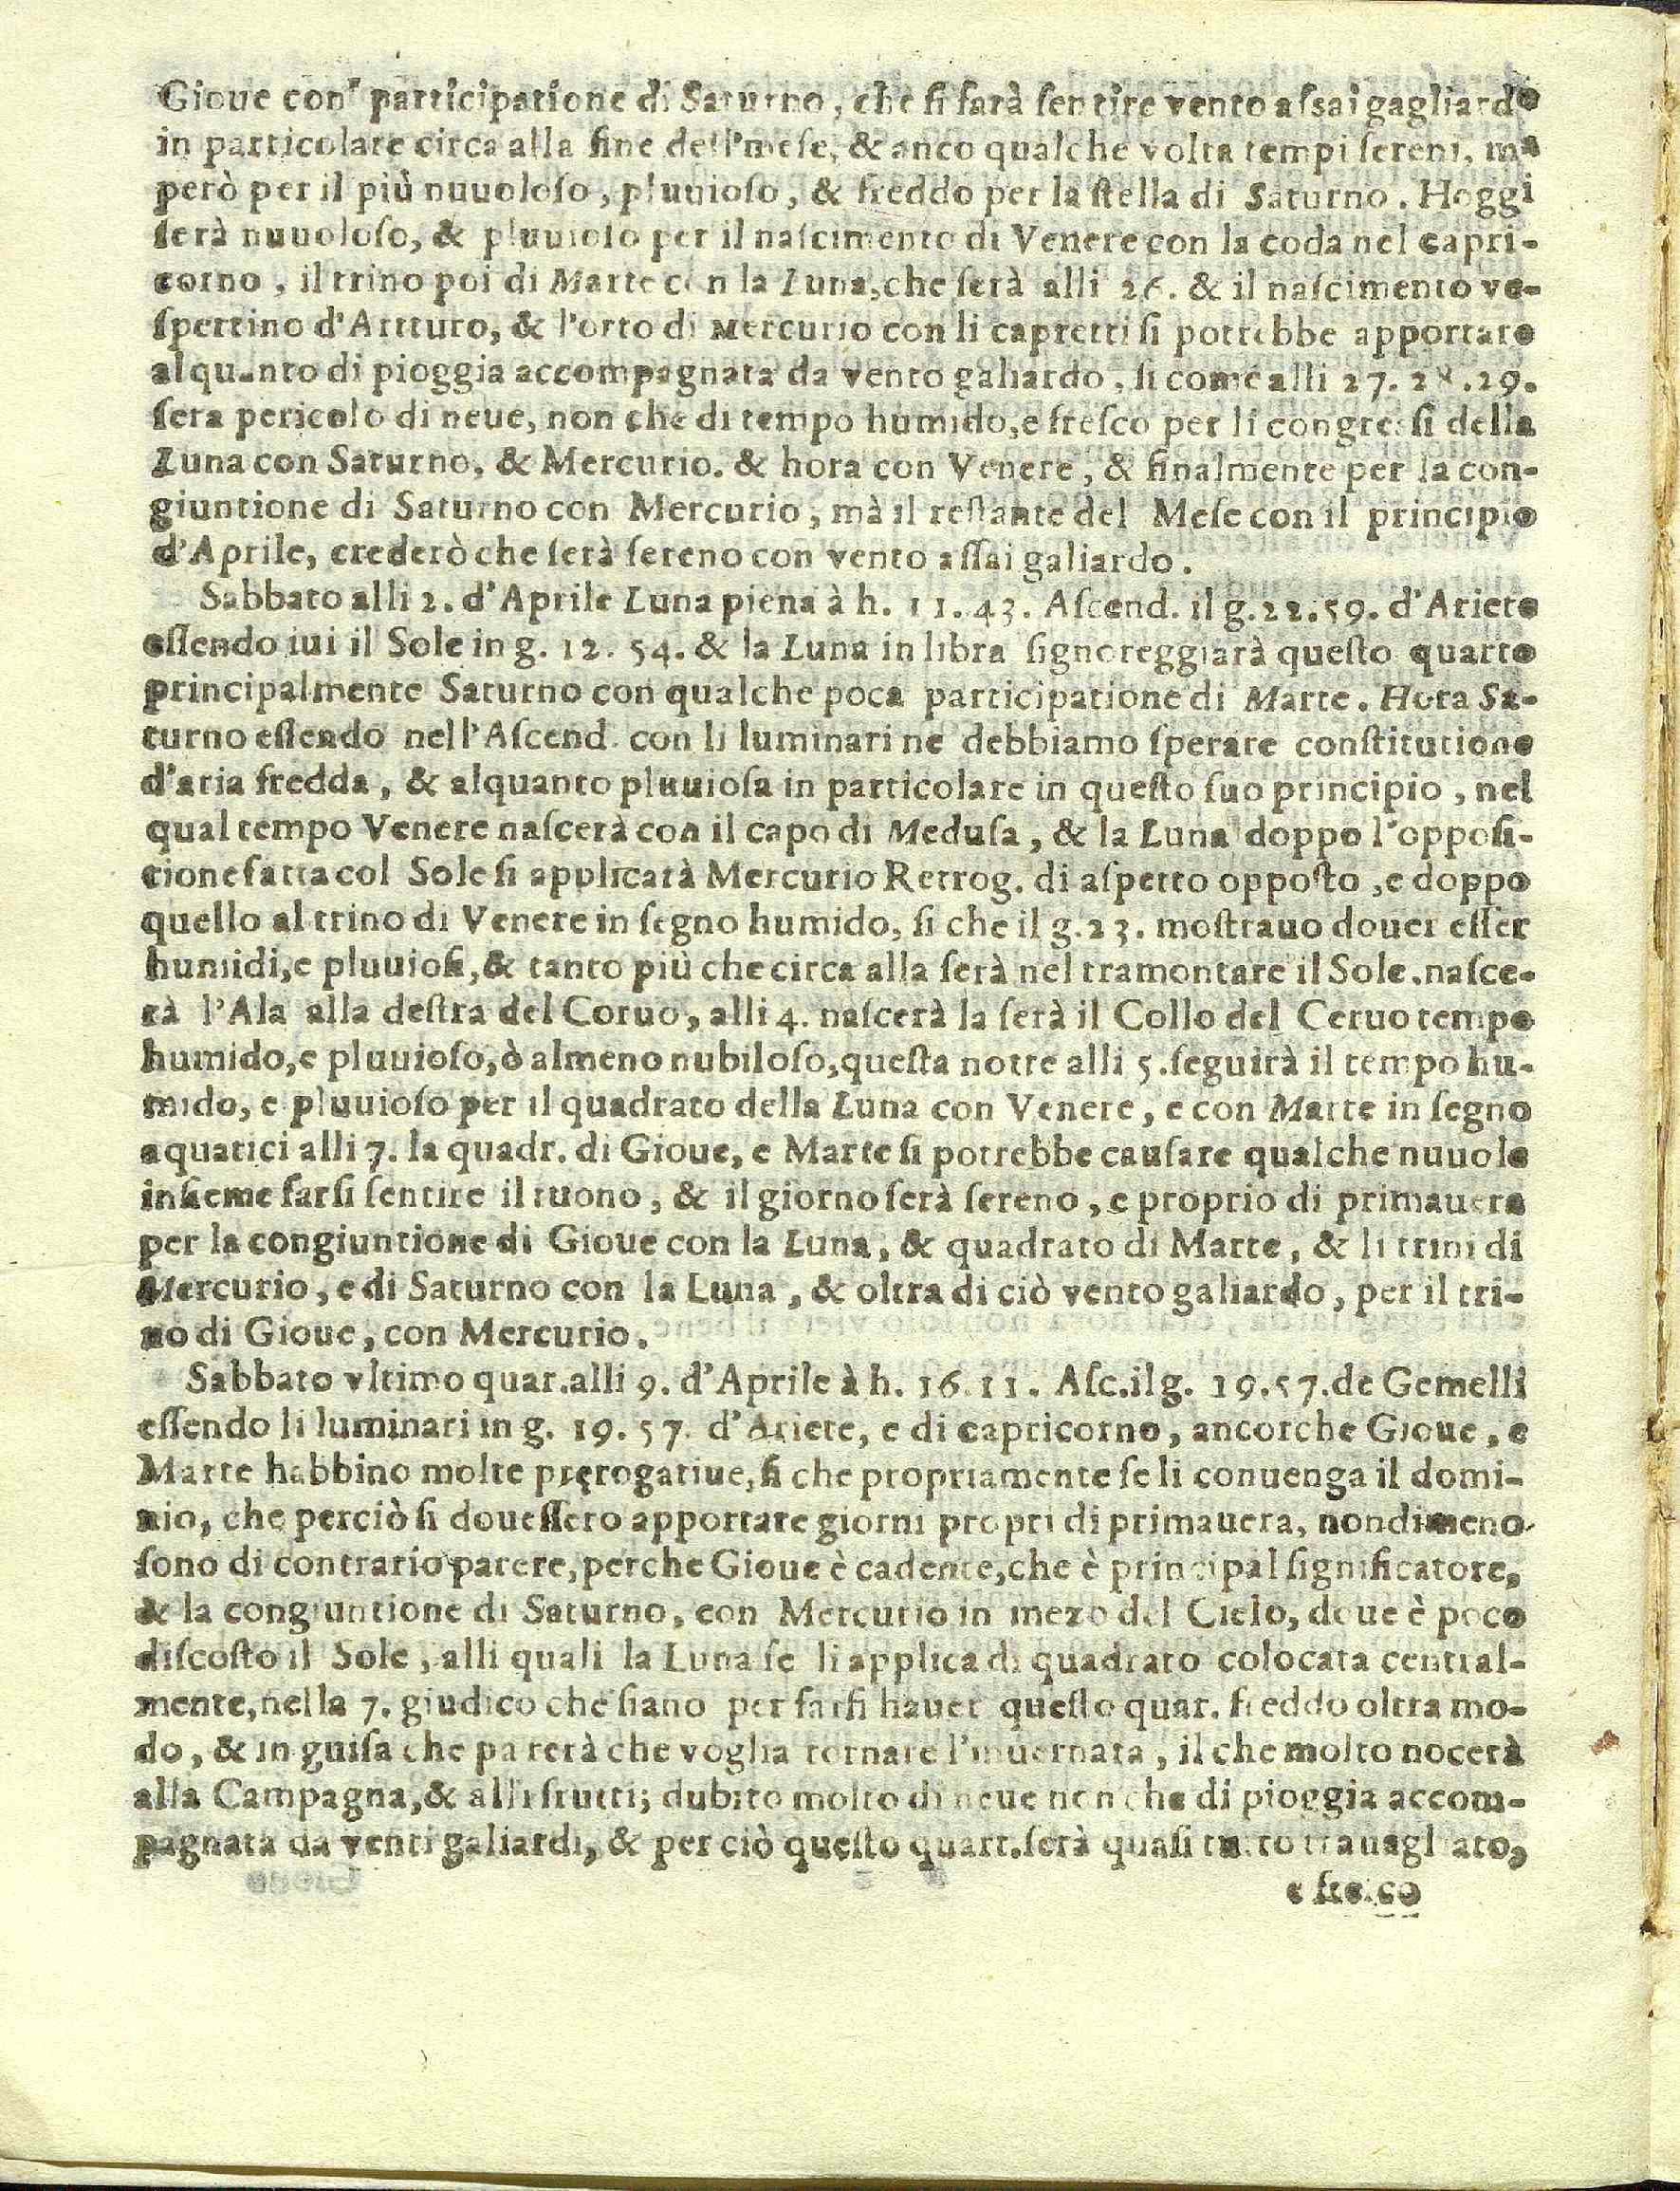 Gioue con participatione di Saturno, che si farà sentire vento assai gagliardo
in particolare circa alla fine dell'mese, & anco qualche volta tempi sereni, ma
però per il più nuuoloso, pluuioso, & freddo per la stella di Saturno. Hoggi
serà nuuoloso, & pluuioso per il nascimento di Venere con la coda nel capri-
corno, il trino poi di Marte con la Luna, che serà alli 26. & il nascimento ve-
spertino d'Artturo, & l'orto di Mercurio con li capretti si potrebbe apportare
alquanto di pioggia accompagnata da vento galiardo, si come alli 27. 28. 29.
sera pericolo di neue, non che di tempo humido, e fresco per li congressi della
Luna con Saturno, & Mercurio. & hora con Venere, & finalmente per la con-
giuntione di Saturno con Mercurio, mà il restante del Mese con il principio
d'Aprile, crederò che serà sereno con vento assai galiardo.
Sabbato alli 2. d'Aprile Luna piena à h. 11. 43. Ascend. il g. 22. 59. d'Ariete
essendo iui il Sole in g. 12. 54. & la Luna in libra signoreggiarà questo quarto
principalmente Saturno con qualche poca participatione di Marte. Hora Sa-
turno essendo nell'Ascend. con li luminari ne debbiamo sperare constitutione
d'aria fredda, & alquanto pluuiosa in particolare in questo suo principio, nel
qual tempo Venere nascerà con il capo di Medusa, & la Luna doppo l'opposi-
tione fatta col Sole si applicarà Mercurio Retrog. di aspetto opposto, e doppo
quello al trino di Venere in segno humido, si che il g. 23. mostrauo douer esser
humidi, e pluuiosi, & tanto più che circa alla serà nel tramontare il Sole. nasce-
rà l'Ala alla destra del Coruo, alli 4. nascerà la serà il Collo del Ceruo tempo
humido, e pluuioso, ò almeno nubiloso, questa notte alli 5. seguirà il tempo hu-
mido, e pluuioso per il quadrato della Luna con Venere, e con Marte in segno
aquatici alli 7. la quadr. di Gioue, e Marte si potrebbe causare qualche nuuole
insieme farsi sentire il tuono, & il giorno serà sereno, e proprio di primauera
per la congiuntione di Gioue con la Luna, & quadrato di Marte, & li trini di
Mercurio, e di Saturno con la Luna, & oltra di ciò vento galiardo, per il tri-
no di Gioue, con Mercurio.
Sabbato vltimo quar. alli 9. d'Aprile à h. 16. 11. Asc. il g. 19. 57. de Gemelli
essendo li luminari in g. 19. 57. d'Ariete, e di capricorno, ancorche Gioue, e
Marte habbino molte prerogatiue, si che propriamente se li conuenga il domi-
nio, che perciò si douessero apportare giorni propri di primauera, nondimeno
sono di contrario parere, perche Gioue è cadente, che è principal significatore,
& la congiuntione di Saturno, con Mercurio in mezo del Cielo, doue è poco
discosto il Sole, alli quali la Luna se li applica di quadrato colocata central-
mente, nella 7. giudico che siano per farsi hauer questo quar. freddo oltra mo-
do, & in guisa che parerà che voglia tornare l'inuernata, il che molto nocerà
alla Campagna, & alli frutti; dubito molto di neue non che di pioggia accom-
pagnata da venti galiardi, & per ciò questo quart. serà quasi tutto trauagliato,
e fresco